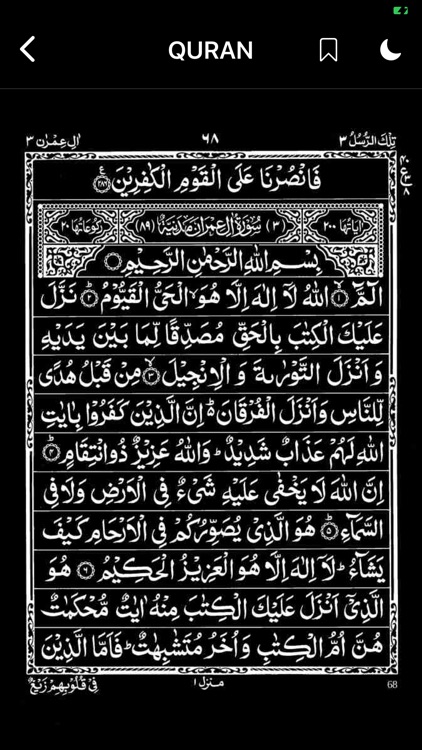 QURAN
تِلْكَ الرُّسُلُ ٣
٦٨
اٰلِ عِمْرٰن ٣
فَانْصُرْنَا عَلَى الْقَوْمِ الْكٰفِرِيْنَ ﴿٢٨٦﴾
ع ٤٠ ٨
اٰيَاتُهَا ٢٠٠ (٣) سُوْرَةُ اٰلِ عِمْرٰنَ مَدَنِيَّةٌ (٨٩) رُكُوْعَاتُهَا ٢٠
بِسْمِ اللهِ الرَّحْمٰنِ الرَّحِيْمِ
الٓمّٓ ﴿١﴾ اللهُ لَاۤ اِلٰهَ اِلَّا هُوَ ۙ الْحَيُّ الْقَيُّوْمُ ﴿٢﴾ نَزَّلَ
عَلَيْكَ الْكِتٰبَ بِالْحَقِّ مُصَدِّقًا لِّمَا بَيْنَ يَدَيْهِ
وَاَنْزَلَ التَّوْرٰىةَ وَ الْاِنْجِيْلَ ﴿٣﴾ مِنْ قَبْلُ هُدًى
لِّلنَّاسِ وَاَنْزَلَ الْفُرْقَانَ ؕ اِنَّ الَّذِيْنَ كَفَرُوْا بِاٰيٰتِ
اللهِ لَهُمْ عَذَابٌ شَدِيْدٌ ؕ وَاللهُ عَزِيْزٌ ذُوانْتِقَامٍ ﴿٤﴾
اِنَّ اللهَ لَا يَخْفٰى عَلَيْهِ شَيْءٌ فِي الْاَرْضِ وَلَا فِي
السَّمَآءِ ﴿٥﴾ هُوَ الَّذِيْ يُصَوِّرُكُمْ فِي الْاَرْحَامِ كَيْفَ
يَشَآءُ ؕ لَاۤ اِلٰهَ اِلَّا هُوَ الْعَزِيْزُ الْحَكِيْمُ ﴿٦﴾ هُوَ
الَّذِيْۤ اَنْزَلَ عَلَيْكَ الْكِتٰبَ مِنْهُ اٰيٰتٌ مُّحْكَمٰتٌ
هُنَّ اُمُّ الْكِتٰبِ وَاُخَرُ مُتَشٰبِهٰتٌ ؕ فَاَمَّا الَّذِيْنَ
68
منزل ١
فِيْ قُلُوْبِهِمْ زَيْغٌ